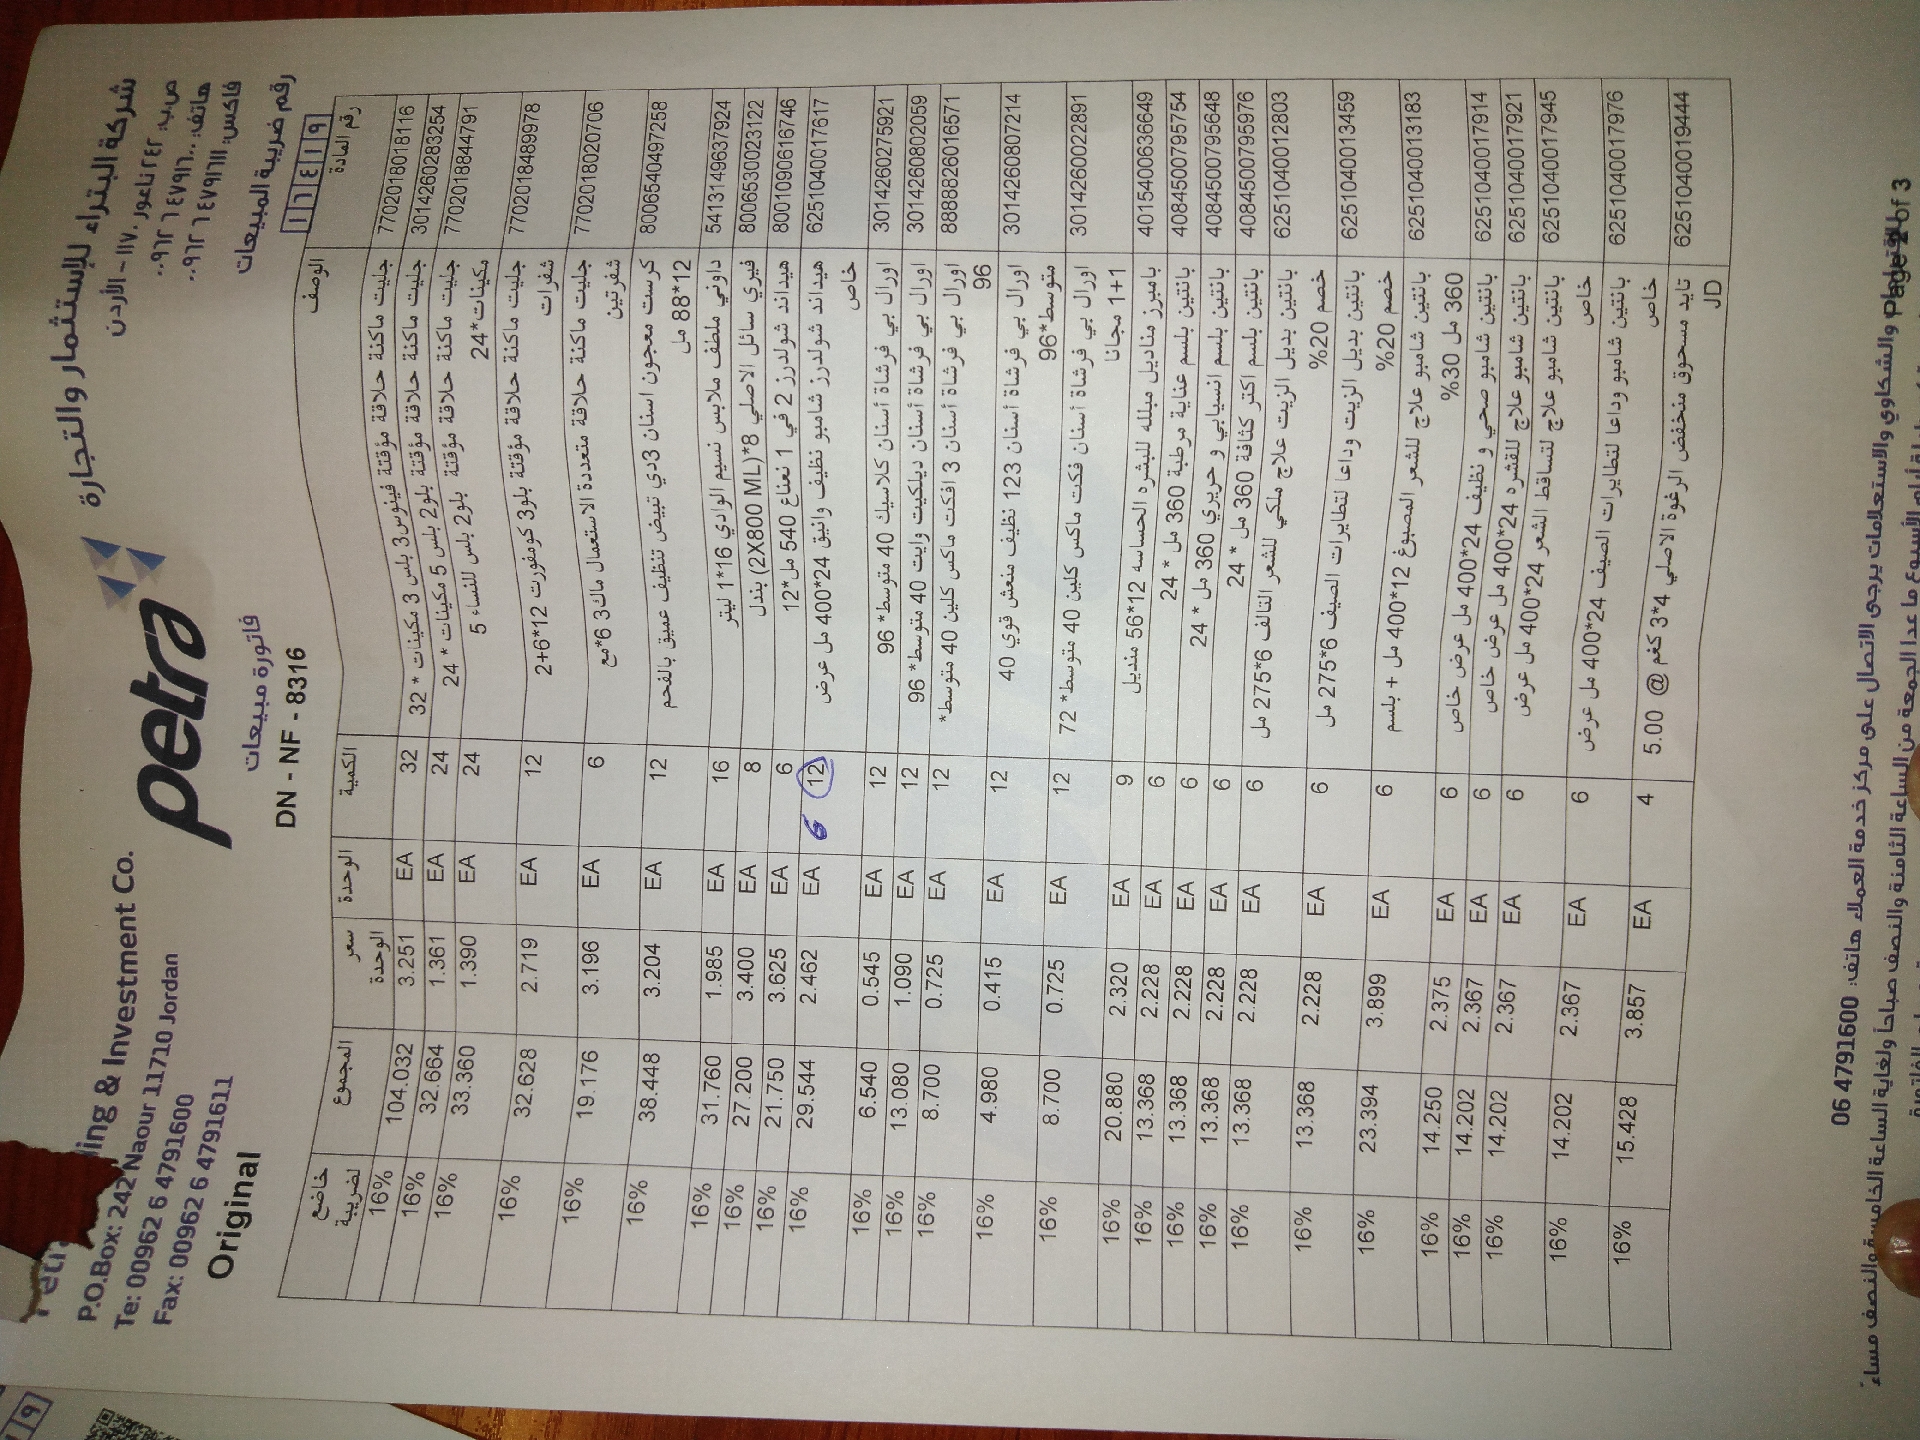 شركة البتراء للإستثمار والتجارة
ص.ب: ٢٤٢ ناعور ١١٧١٠ – الأردن
هاتف: ٤٧٩١٦٠٠ ٦ ٠٠٩٦٢
فاكس: ٤٧٩١٦١١ ٦ ٠٠٩٦٢
رقم ضريبة المبيعات
petra
ding & Investment Co.
P.O.Box: 242 Naour 11710 Jordan
Te: 00962 6 4791600
Fax: 00962 6 4791611
Original
فاتورة مبيعات
DN - NF - 8316
رقم المادة الوصف الكمية الوحدة سعر الوحدة المجموع خاضع لضريبة
7702018018116 جليت ماكنة حلاقة مؤقتة فينوس3 بلس 3 مكينات * 32 32 EA 3.251 104.032 16%
3014260283254 جليت ماكنة حلاقة مؤقتة بلو2 بلس 5 مكينات * 24 24 EA 1.361 32.664 16%
7702018844791 جليت ماكنة حلاقة مؤقتة بلو2 بلس للنساء 5 24 EA 1.390 33.360 16%
مكينات*24
7702018489978 جليت ماكنة حلاقة مؤقتة بلو3 كومفورت 12*6+2 12 EA 2.719 32.628 16%
شفرات
7702018020706 جليت ماكنة حلاقة متعددة الاستعمال ماك3 6*مع 6 EA 3.196 19.176 16%
شفرتين
8006540497258 كرست معجون اسنان 3دي تبييض تنظيف عميق بالفحم 12 EA 3.204 38.448 16%
12*88 مل
5413149637924 داوني ملطف ملابس نسيم الوادي 16*1 ليتر 16 EA 1.985 31.760 16%
8006530023122 فيري سائل الاصلي 8*(2X800 ML) بندل 8 EA 3.400 27.200 16%
8001090616746 هيداند شولدرز 2 في 1 نعناع 540 مل*12 6 EA 3.625 21.750 16%
6251040017617 هيداند شولدرز شامبو نظيف وانيق 24*400 مل عرض 12 6 EA 2.462 29.544 16%
خاص
3014260275921 اورال بي فرشاة أسنان كلاسيك 40 متوسط* 96 12 EA 0.545 6.540 16%
3014260802059 اورال بي فرشاة أسنان ديلكيت وايت 40 متوسط* 96 12 EA 1.090 13.080 16%
8888826016571 اورال بي فرشاة أسنان 3 افكت ماكس كلين 40 متوسط* 12 EA 0.725 8.700 16%
96
3014260807214 اورال بي فرشاة أسنان 123 نظيف منعش قوي 40 12 EA 0.415 4.980 16%
متوسط*96
3014260022891 اورال بي فرشاة أسنان فكت ماكس كلين 40 متوسط* 72 12 EA 0.725 8.700 16%
1+1 مجانا
4015400636649 بامبرز مناديل مبلله للبشره الحساسه 12*56 منديل 9 EA 2.320 20.880 16%
4084500795754 بانتين بلسم عناية مرطبة 360 مل * 24 6 EA 2.228 13.368 16%
4084500795648 بانتين بلسم انسيابي و حريري 360 مل * 24 6 EA 2.228 13.368 16%
4084500795976 بانتين بلسم اكثر كثافة 360 مل * 24 6 EA 2.228 13.368 16%
6251040012803 بانتين بديل الزيت علاج ملكي للشعر التالف 6*275 مل 6 EA 2.228 13.368 16%
خصم 20%
6251040013459 بانتين بديل الزيت وداعا لتطايرات الصيف 6*275 مل 6 EA 2.228 13.368 16%
خصم 20%
6251040013183 بانتين شامبو علاج للشعر المصبوغ 12*400 مل + بلسم 6 EA 3.899 23.394 16%
360 مل 30%
6251040017914 بانتين شامبو صحي و نظيف 24*400 مل عرض خاص 6 EA 2.375 14.250 16%
6251040017921 بانتين شامبو علاج للقشره 24*400 مل عرض خاص 6 EA 2.367 14.202 16%
6251040017945 بانتين شامبو علاج لتساقط الشعر 24*400 مل عرض 6 EA 2.367 14.202 16%
خاص
6251040017976 بانتين شامبو وداعا لتطايرات الصيف 24*400 مل عرض 6 EA 2.367 14.202 16%
خاص
6251040019444 تايد مسحوق منخفض الرغوة الاصلي 4*3 كغم @ 5.00 4 EA 3.857 15.428 16%
JD
والشكاوي والاستعلامات يرجى الاتصال على مركز خدمة العملاء هاتف: 06 4791600
Page 2 of 3
أيام الأسبوع ما عدا الجمعة من الساعة الثامنة والنصف صباحاً ولغاية الساعة الخامسة والنصف مساءً